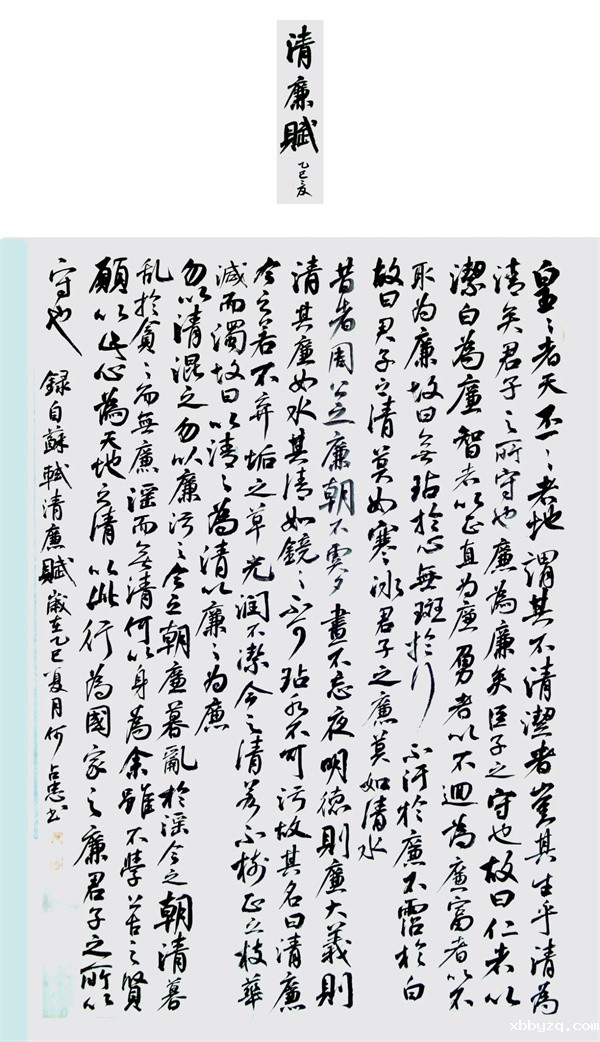 清廉賦
乙巳夏
皇〻者天丕〻者地謂其不清潔者豈其生乎清為
清矣君子之所守也廉為廉矣臣子之守也故曰仁者以
潔白為廉智者以正直為廉勇者以不迴為廉富者以不
取為廉故曰無玷於心無斑於行不汙於廉不霑於白
故曰君子之清莫如寒冰君子之廉莫如清水
昔者周公之廉朝不虞夕晝不忘夜明德則廉大義則
清其廉如水其清如鏡〻不可玷水不可污故其名曰清廉
今之若不弃垢之草光潤不潔今之清若不樹正立枝華
滅而濁故曰以清〻為清以廉〻為廉
勿以清混之勿以廉污之今之朝廉暮亂於淫今之朝清暮
乱於貪〻而無廉淫而無清何以身為余雖不學苦之賢
願以此心為天地之清以此行為國家之廉君子之所以
守也 録自蘇軾清廉賦歲在乙巳夏月何占忠书
xbbyzq.com